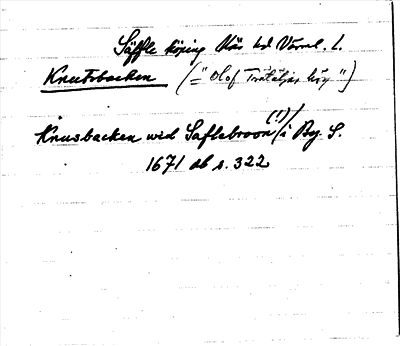 Säffle köping Näs hd Värml. l.
Knutsbacken (= "Olof Trätäljas hög")
Knusbacken wid Saflebroon (!) / i By S.
1671 ab s. 322